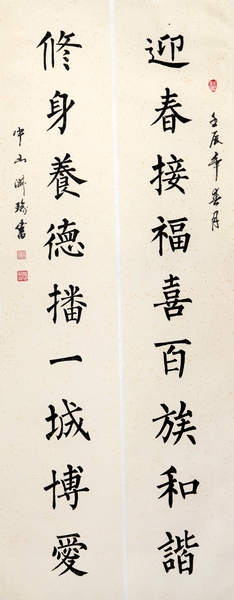 迎春接福喜百族和諧
壬辰年春月
修身養德播一城博愛
中山
書